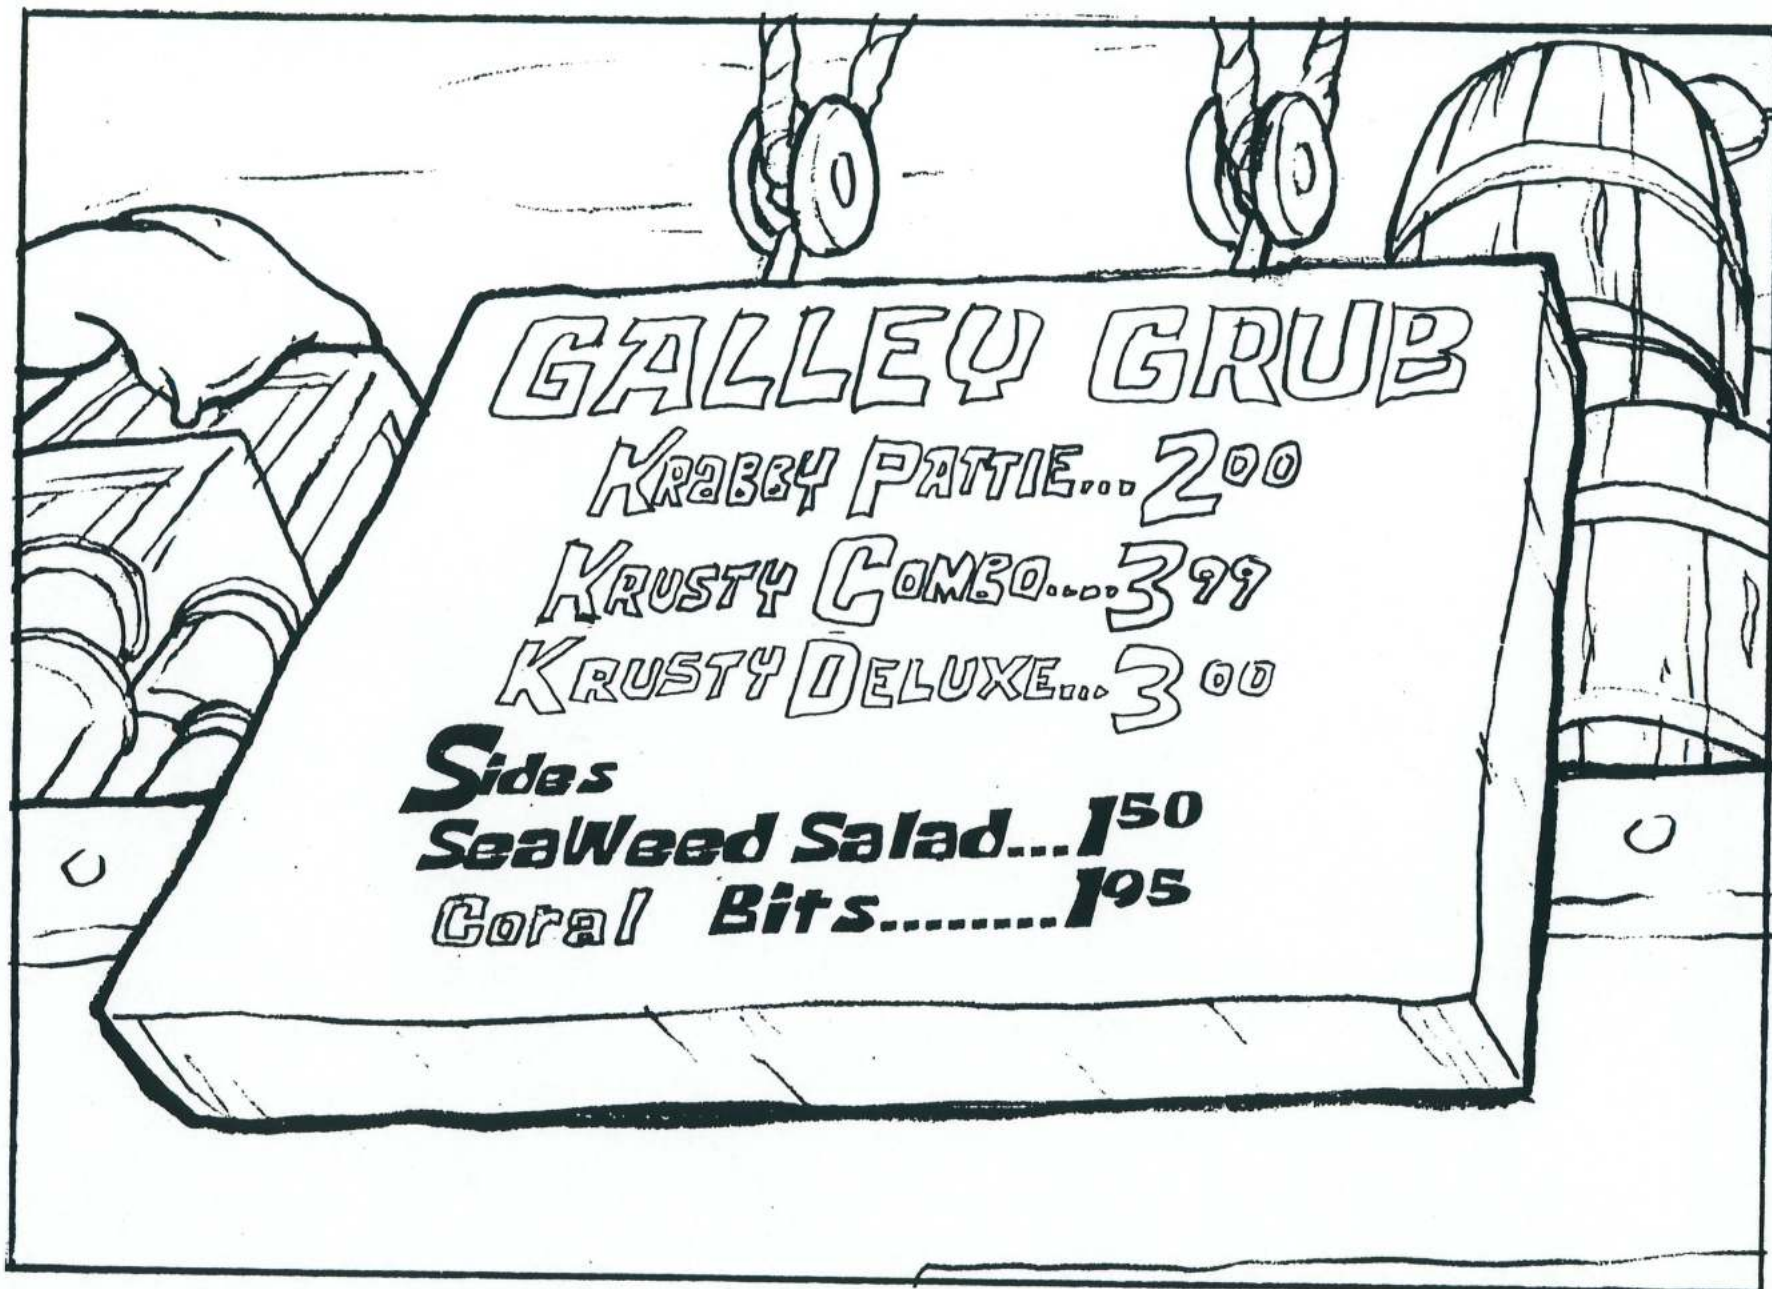 GALLEY GRUB
KRABBY PATTIE...2 00
KRUSTY COMBO....3 99
KRUSTY DELUXE...3 00
Sides
SeaWeed Salad...1 50
Coral Bits........1 95